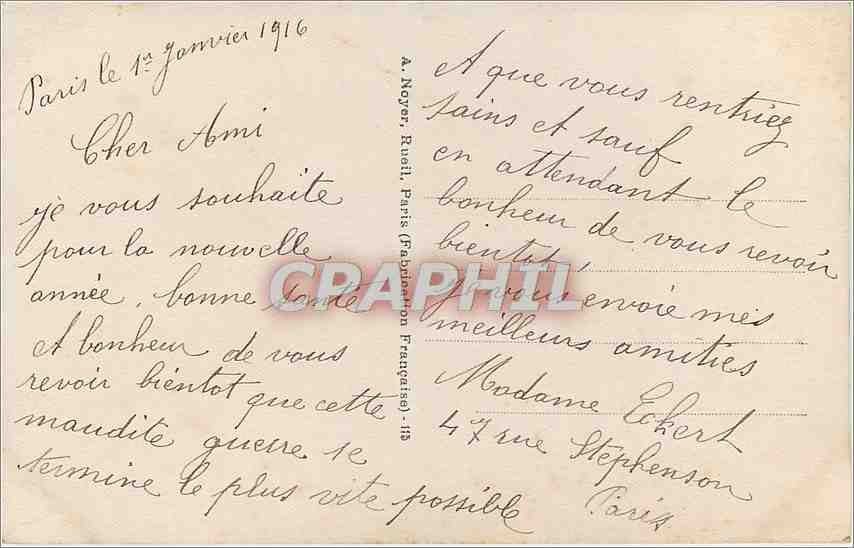 Paris le 1er Janvier 1916
Cher Ami
je vous souhaite
pour la nouvelle
année, bonne santé
et bonheur de vous
revoir bientot que cette
maudite guerre se
termine le plus vite possible
A. Noyer, Rueil, Paris (Fabrication Française) - 113
et que vous rentriez
sains et sauf
en attendant le
bonheur de vous revoir
bientot,
je vous envoie mes
meilleurs amitiés
Madame Eckert
47 rue Stephenson
Paris
CPAPHIL